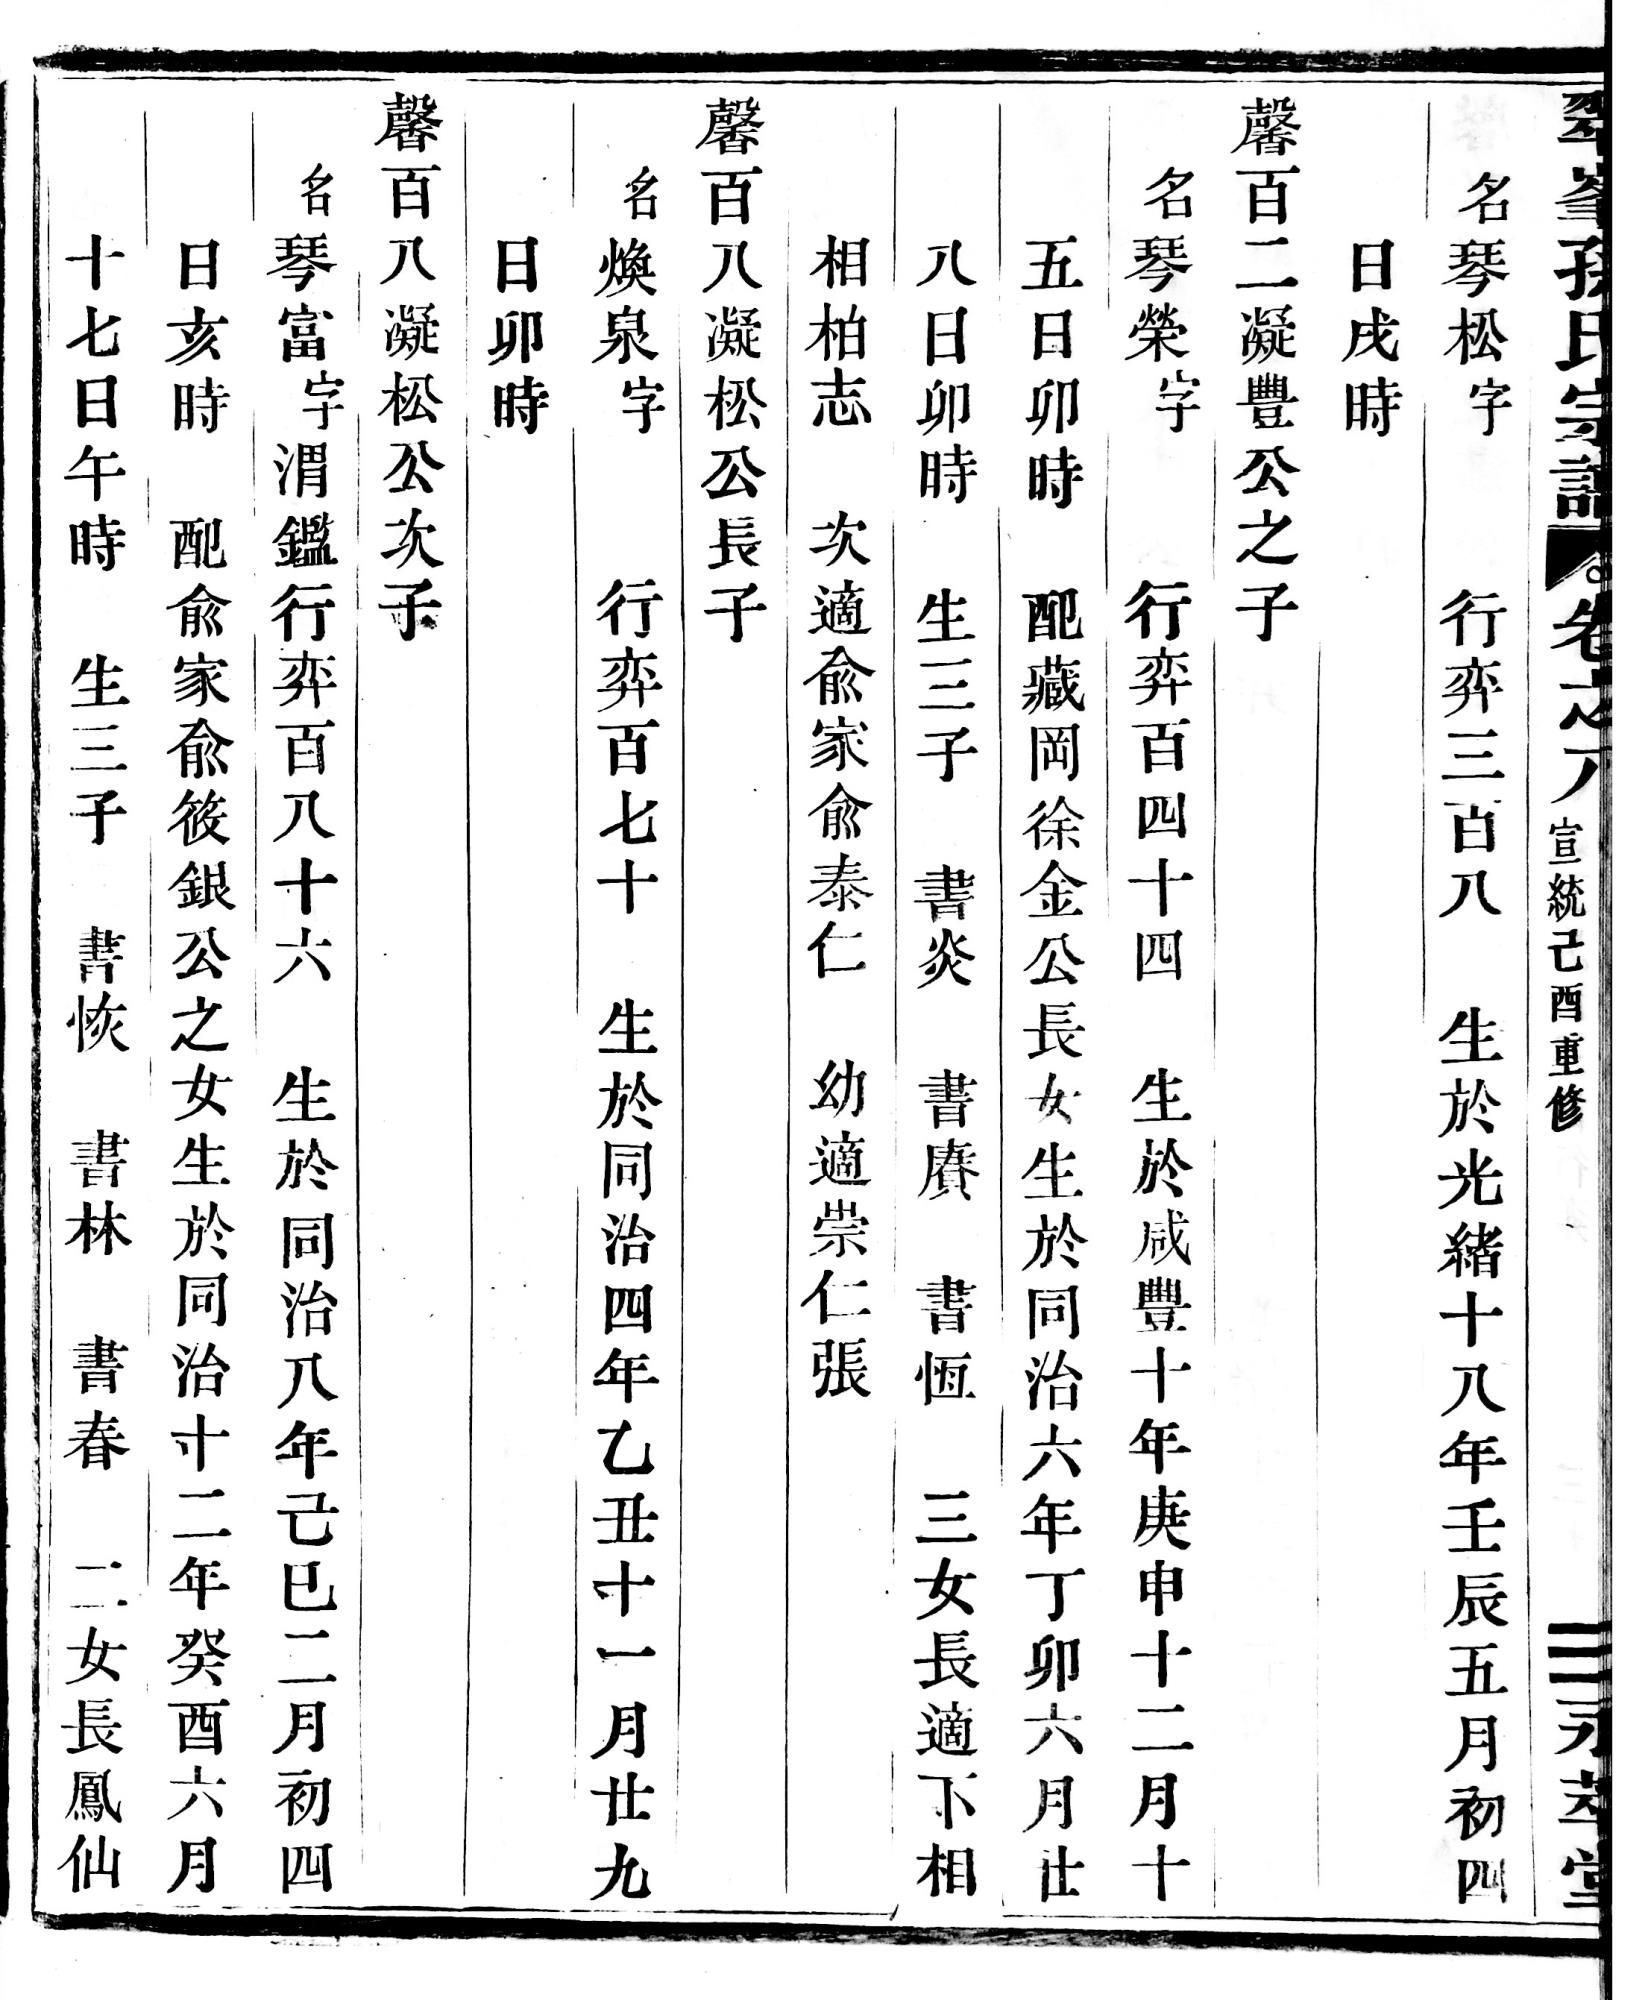 翠峯孫氏宗譜 卷之八 宣統己酉重修 三 永萃堂
名琴松字 行弈三百八 生於光緒十八年壬辰五月初四
日戌時
馨百二凝豐公之子
名琴榮字 行弈百四十四 生於咸豐十年庚申十二月十
五日卯時 配藏岡徐金公長女生於同治六年丁卯六月廿
八日卯時 生三子 書炎 書賡 書恆 三女長適下相
相柏志 次適俞家俞泰仁 幼適崇仁張
馨百八凝松公長子
名煥泉字 行弈百七十 生於同治四年乙丑十一月廿九
日卯時
馨百八凝松公次子
名琴富字渭鑑行弈百八十六 生於同治八年己巳二月初四
日亥時 配俞家俞筱銀公之女生於同治十二年癸酉六月
十七日午時 生三子 書恢 書林 書春 二女長鳳仙